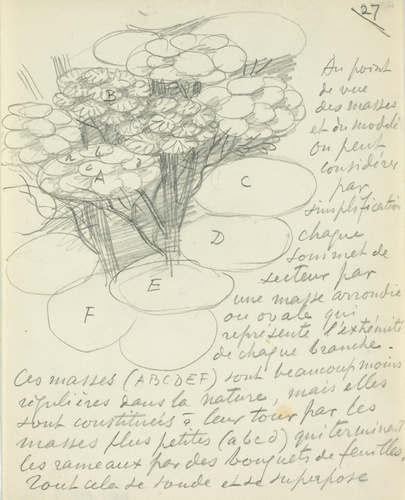 27
Au point
de vue
des masses
et du modelé
on peut
considérer
par
simplification
chaque
sommet de
secteur par
une masse arrondie
ou ovale qui
représente l'extrémité
de chaque branche -
Ces masses (ABCDEF) sont beaucoup moins
régulières dans la nature, mais elles
sont constituées à leur tour par les
masses plus petites (abcd) qui terminent
les rameaux par des bouquets de feuilles.
Tout cela se soude et se superpose
B
a b
c d
A
C
D
E
F